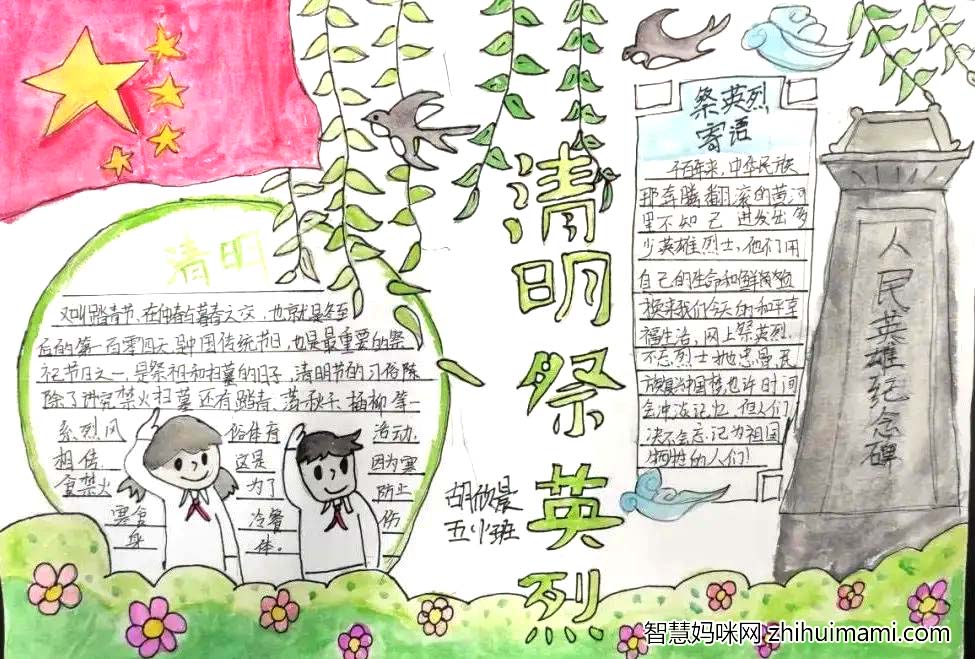 清明
又叫踏青节,在仲春与暮春之交,也就是冬至
后的第一百零四天是中国传统节日,也是最重要的祭
祀节日之一,是祭祖和扫墓的日子,清明节的习俗除
除了讲究禁火扫墓还有踏青、荡秋千、插柳等一
系列风 俗体育 活动.
相传. 这是 因为寒
食禁火 为了 防止
寒食 冷餐 伤
身 体。
清明祭英烈
胡欣晨
祭英烈
寄语
千百年来,中华民族
那奔腾翻滚的黄河
里不知已 迸发出多
少英雄烈士,他们用
自己的生命和鲜血
换来我们今天的和平幸
福生活,网上祭英烈.
不忘烈士
也许时间
会冲淡记忆 但人们
决不会忘记为祖国
牺牲的人们!
人民英雄纪念碑
智慧妈咪网 zhihuimami.com